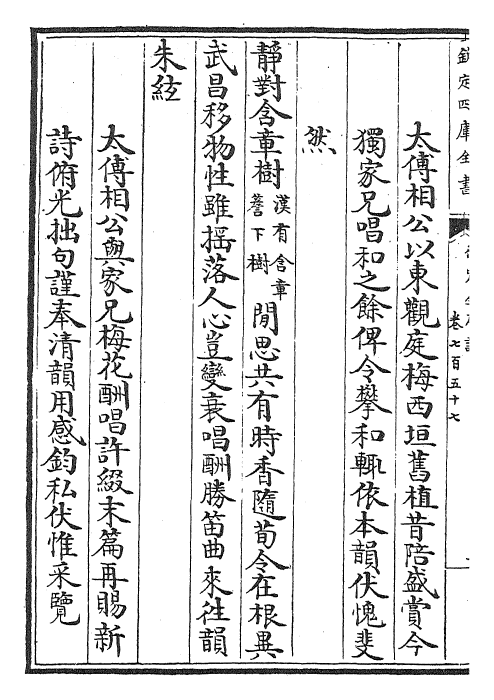 欽定四庫全書
卷七百五十七
太傅相公以東觀庭梅西垣舊植昔陪盛賞今
獨家兄唱和之餘俾令攀和輒依本韻伏愧斐
然
靜對含章樹漢有含章簷下樹閒思共有時香隨荀令在根異
武昌移物性雖搖落人心豈變衰唱酬勝笛曲來徃韻
朱絃
太傅相公與家兄梅花酬唱許綴末篇再賜新
詩俯光拙句謹奉清韻用感鈞私伏惟采覽